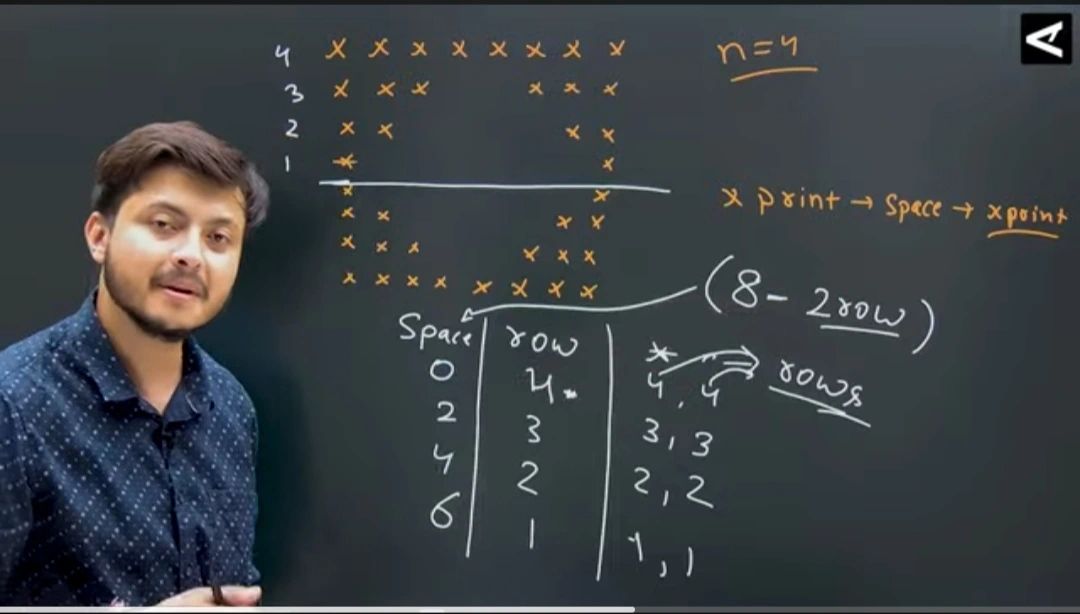 n=4
4 x x x x x x x x
3 x x x x x x
2 x x x x
1 * x
x x
x x x x
x x x x x x
x x x x x x x x
x print → space → xprint
(8 - 2row)
Space row *
0 4. 4, 4 rows
2 3 3, 3
4 2 2, 2
6 1 1, 1